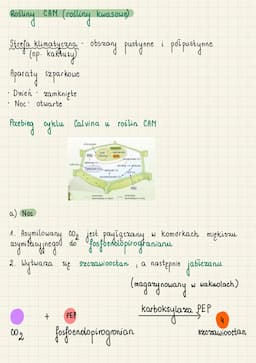 Rośliny CAM (rośliny kwasowe)
Strefa klimatyczna - obszary pustynne i półpustynne
(np. kaktusy)
Aparaty szparkowe
· Dzień - zamknięte
· Noc - otwarte
Przebieg cyklu Calvina u roślin CAM
a) Noc
1. Asymilowany CO2 jest przyłączany w komórkach miękiszu
asymilacyjnego do fosfoenolopirogronianu
2. Wytwarza się szczawiooctan, a następnie jabłczan
(magazynowany w wakuolach)
karboksylaza PEP
+ PEP 4
CO2 fosfoenolopirogronian szczawiooctan